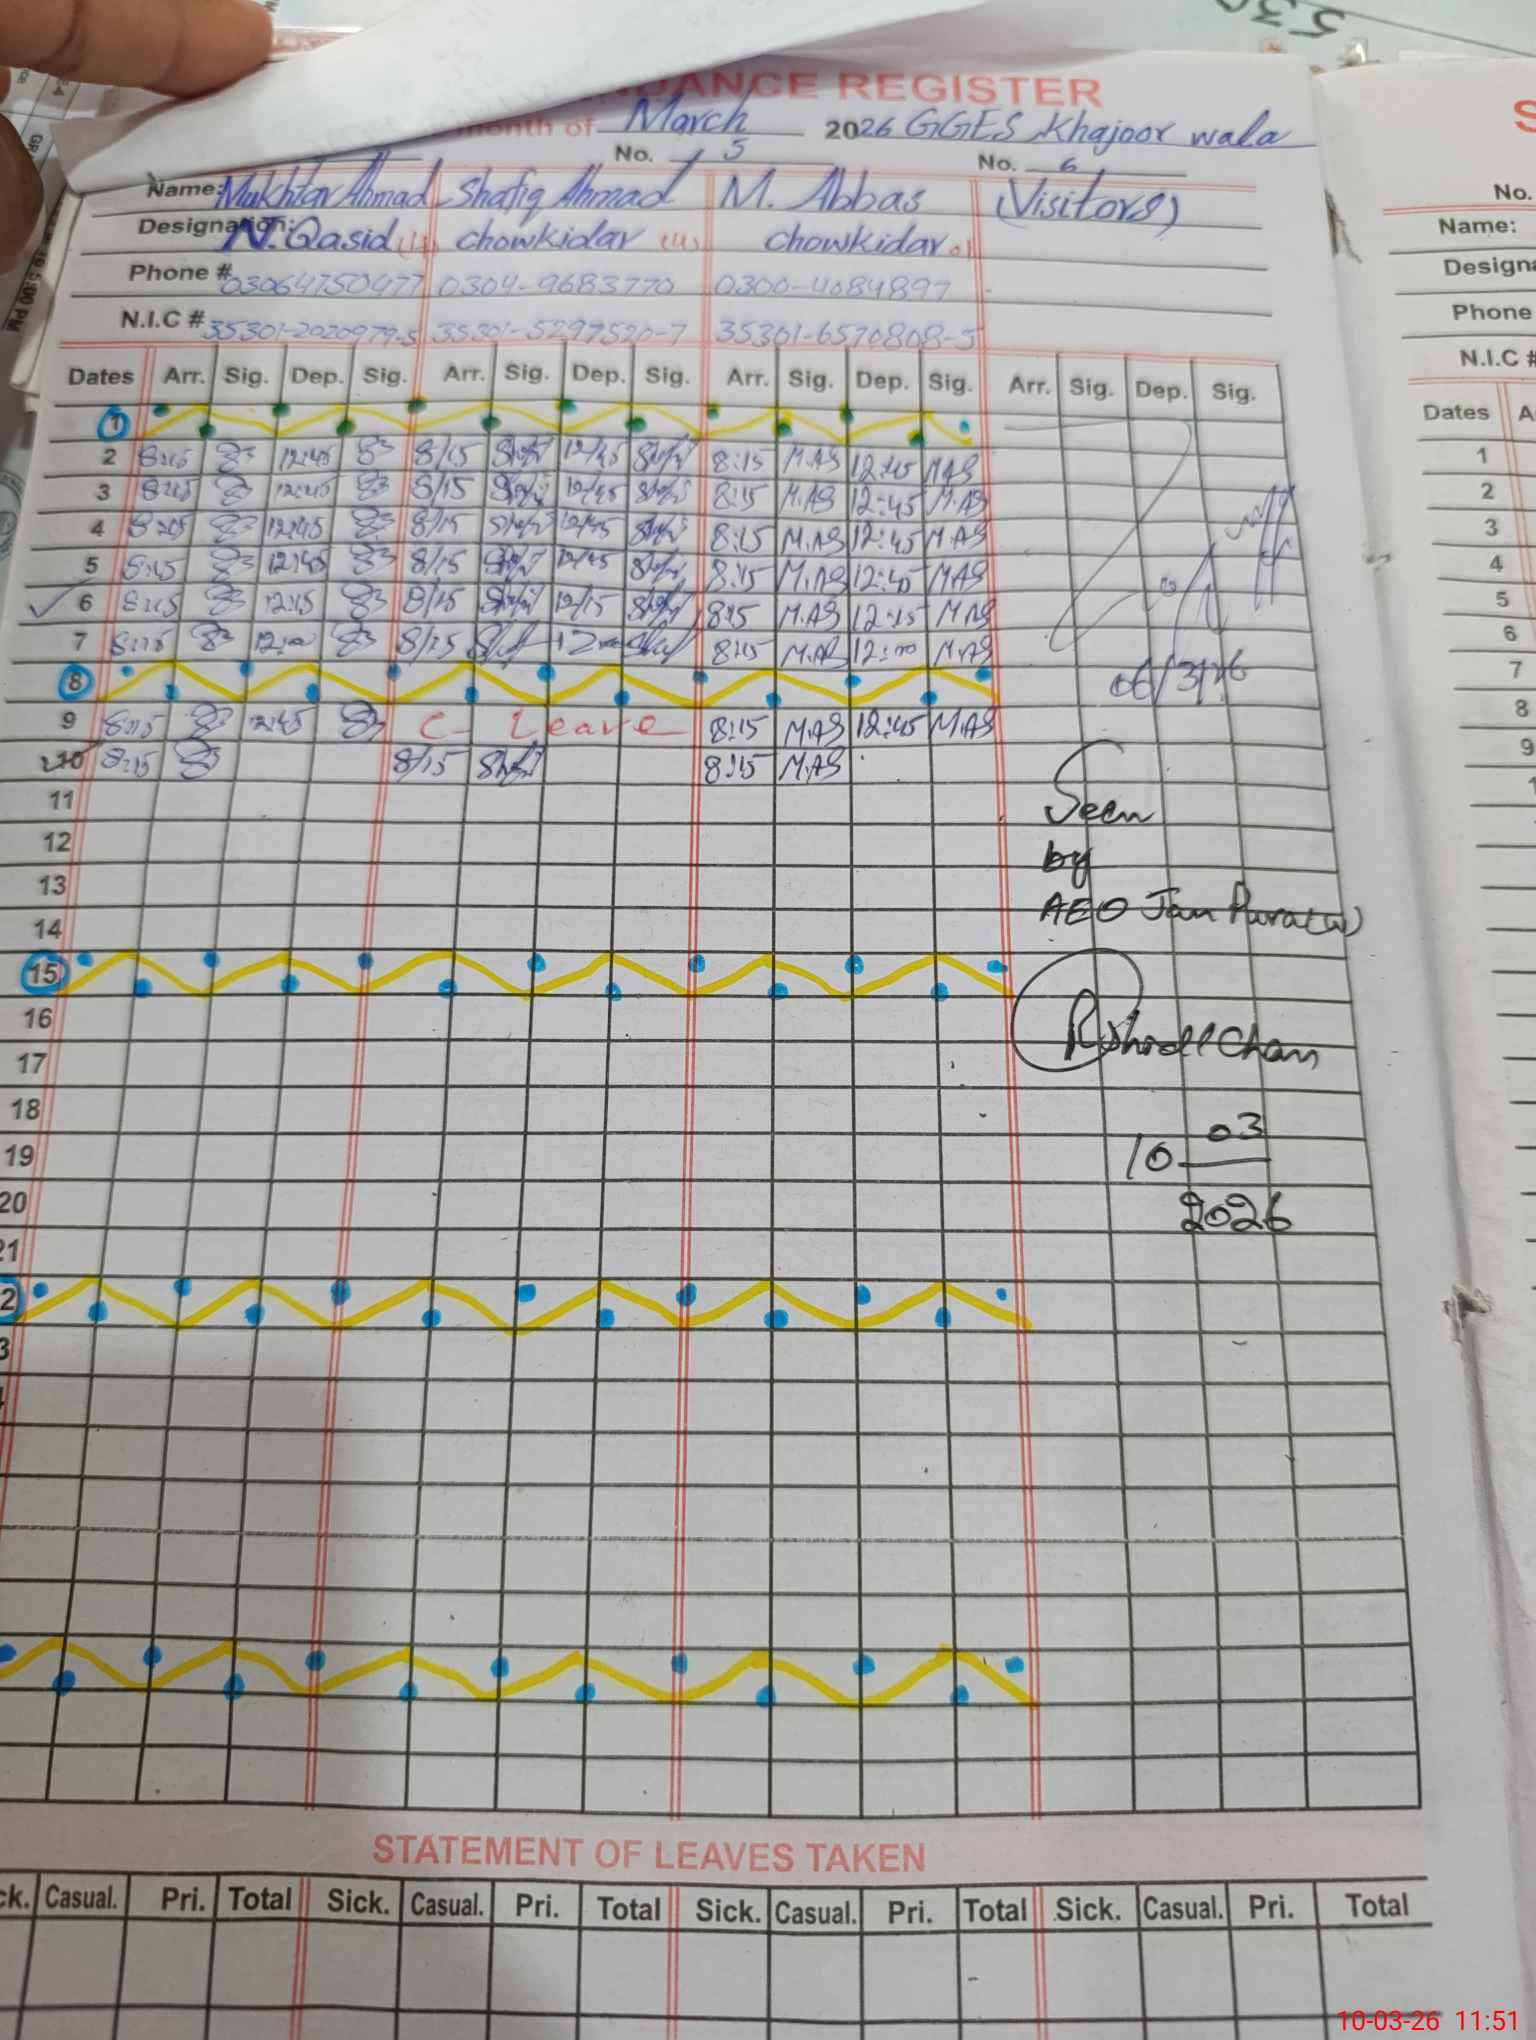 DANCE REGISTER
month of March 2026 GGES Khajoor wala
No. 5 No. 6
Name: Mukhtar Ahmad Shafiq Ahmad M. Abbas (Visitors)
Designation: N. Qasid chowkidar chowkidar
Phone # 03064750477 0304-9683770 0300-4084897
N.I.C # 35301-2020979-5 35301-5297520-7 35301-6570808-5
Dates Arr. Sig. Dep. Sig. Arr. Sig. Dep. Sig. Arr. Sig. Dep. Sig. Arr. Sig. Dep. Sig.
1
2 8:15 12:45 8/15 12/45 8:15 M.AS 12:45 M.AS
3 8:15 12:45 8/15 12/45 8:15 M.AS 12:45 M.AS
4 8:15 12:45 8/15 12/45 8:15 M.AS 12:45 M.AS
5 8:15 12:45 8/15 12/45 8:15 M.AS 12:45 M.AS
6 8:15 12:15 8/15 12/15 8:15 M.AS 12:15 M.AS
7 8:15 12:00 8/15 8:15 M.AS 12:00 M.AS
06/3/26
8
9 8:15 12:45 C- Leave 8:15 M.AS 12:45 M.AS
10 8:15 8/15 8:15 M.AS
11
12
13
14
15
16
17
18
19
20
21
2
3
Seen
by
AEO
10 03
2026
STATEMENT OF LEAVES TAKEN
ck. Casual. Pri. Total Sick. Casual. Pri. Total Sick. Casual. Pri. Total Sick. Casual. Pri. Total
No.
Name:
Designa
Phone
N.I.C #
Dates A
1
2
3
4
5
6
7
8
9
10-03-26 11:51